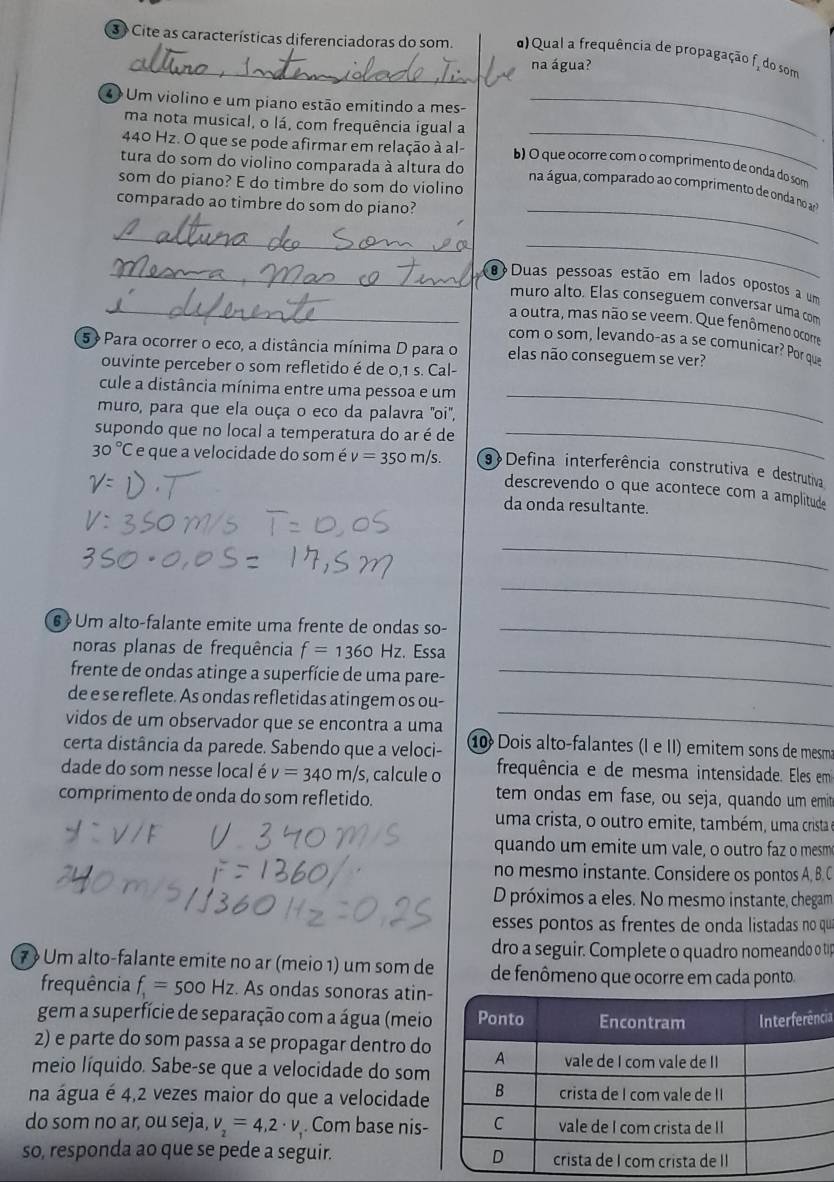 3 Cite as características diferenciadoras do som.
altura, Intensidade, Timbre
4 Um violino e um piano estão emitindo a mes-
ma nota musical, o lá, com frequência igual a
440 Hz. O que se pode afirmar em relação à al-
tura do som do violino comparada à altura do
som do piano? E do timbre do som do violino
comparado ao timbre do som do piano?
A altura do Som é a
mesma, mas o timbre
é diferente
5 Para ocorrer o eco, a distância mínima D para o
ouvinte perceber o som refletido é de 0,1 s. Cal-
cule a distância mínima entre uma pessoa e um
muro, para que ela ouça o eco da palavra "oi",
supondo que no local a temperatura do ar é de
30 °C e que a velocidade do som é v = 350 m/s.
V= D.T
V: 350 m/s T= 0,05
350 . 0,05 = 17,5 m
6 Um alto-falante emite uma frente de ondas so-
noras planas de frequência f = 1360 Hz. Essa
frente de ondas atinge a superfície de uma pare-
de e se reflete. As ondas refletidas atingem os ou-
vidos de um observador que se encontra a uma
certa distância da parede. Sabendo que a veloci-
dade do som nesse local é v = 340 m/s, calcule o
comprimento de onda do som refletido.
= V/F V. 340 m/s
= 1360/
340 m/s /1360 Hz = 0,25
7 Um alto-falante emite no ar (meio 1) um som de
frequência f₁ = 500 Hz. As ondas sonoras atin-
gem a superfície de separação com a água (meio
2) e parte do som passa a se propagar dentro do
meio líquido. Sabe-se que a velocidade do som
na água é 4,2 vezes maior do que a velocidade
do som no ar, ou seja, v₂ = 4,2 · v₁. Com base nis-
so, responda ao que se pede a seguir.
a) Qual a frequência de propagação f₂ do som
na água?
b) O que ocorre com o comprimento de onda do som
na água, comparado ao comprimento de onda no ar?
8 Duas pessoas estão em lados opostos a um
muro alto. Elas conseguem conversar uma com
a outra, mas não se veem. Que fenômeno ocorre
com o som, levando-as a se comunicar? Por que
elas não conseguem se ver?
9 Defina interferência construtiva e destrutiva,
descrevendo o que acontece com a amplitude
da onda resultante.
10 Dois alto-falantes (I e II) emitem sons de mesma
frequência e de mesma intensidade. Eles emi
tem ondas em fase, ou seja, quando um emit
uma crista, o outro emite, também, uma crista e
quando um emite um vale, o outro faz o mesmo
no mesmo instante. Considere os pontos A, B, C
D próximos a eles. No mesmo instante, chegam
esses pontos as frentes de onda listadas no qua
dro a seguir. Complete o quadro nomeando o tip
de fenômeno que ocorre em cada ponto.
Ponto Encontram Interferência
A vale de I com vale de II
B crista de I com vale de II
C vale de I com crista de II
D crista de I com crista de II